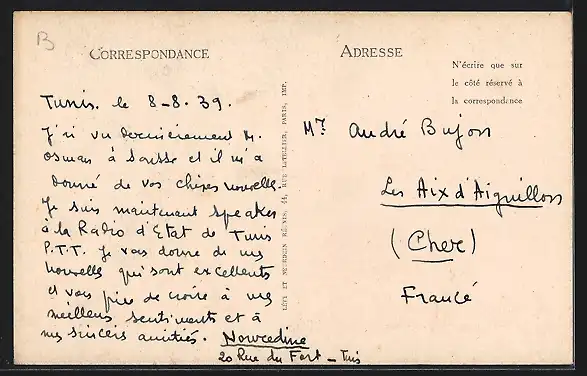 B
CORRESPONDANCE
Tunis. le 8-8.39.
J'ai vu dernièrement M.
osman à Sousse et il m'a
donné de vos chères nouvelle.
Je suis maintenant speaker
à la Radio d'Etat de Tunis
P.T.T. Je vous donne de mes
nouvelle qui sont excellents
et vous prie de croire à mes
meilleurs sentiments et à
mes sincers amitiés. Nouredine
20 Rue du Fort - Tunis
LÉVY ET NEURDEIN RÉUNIS, 44, RUE LETELLIER, PARIS, IMP.
ADRESSE
N'écrire que sur
le côté réservé à
la correspondance
Mr André Bujon
Les Aix d'Aiguillons
(Cher)
Francé